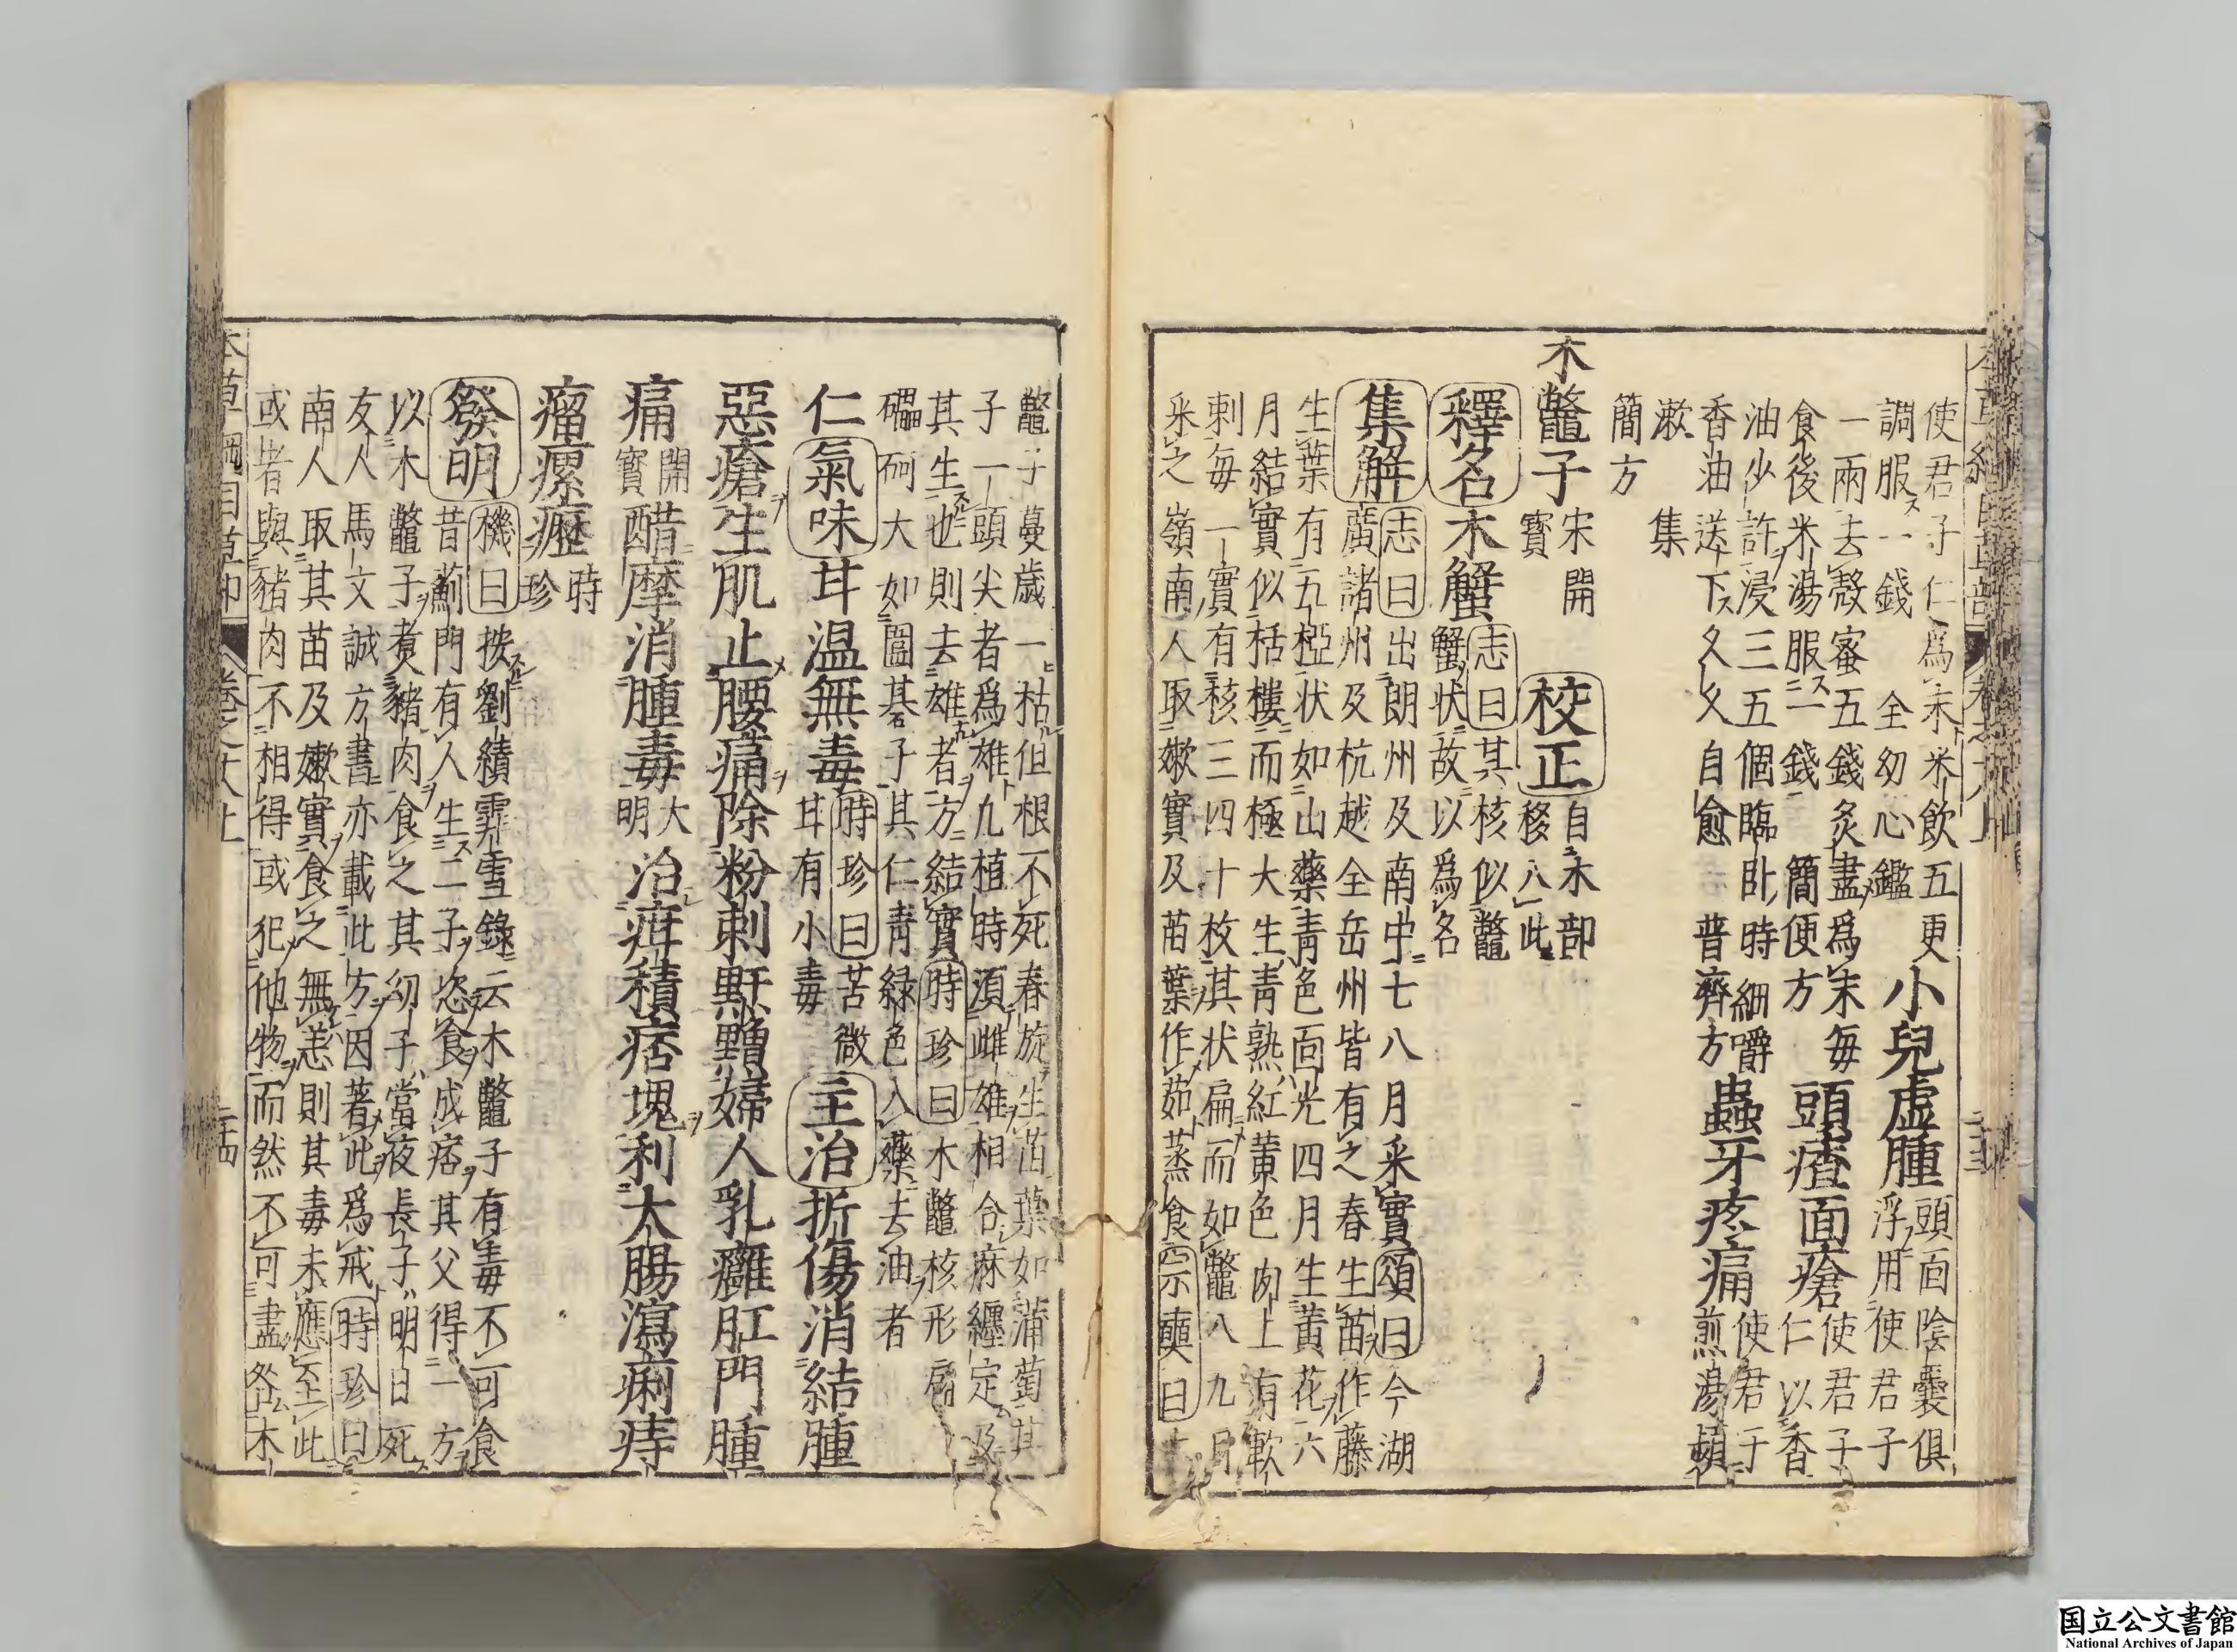 使君子仁爲末米飲五更
調服一錢 全幼心鑑
小兒虛腫
頭面陰囊俱
浮用使君子
一兩去殼蜜五錢炙盡爲末每
食後米湯服一錢 簡便方
頭瘡面瘡
使君子
仁以香
油少許浸三五個臨卧時細嚼
香油送下久久自愈 普濟方
蟲牙疼痛
使君子
煎湯頻
漱 集
簡方
木鼈子
宋開
寶
校正
自木部
移八此
釋名
木蟹
志曰其核似鼈
蟹狀故以爲名
集解
志曰出朗州及南中七八月采實頌曰今湖
廣諸州及杭越全岳州皆有之春生苗作藤
生葉有五椏狀如山藥青色面光四月生黃花六
月結實似栝樓而極大生青熟紅黃色肉上有軟
刺每一實有核三四十枚其状扁而如鼈八九月
采之嶺南人取嫩實及苗葉作茹蒸食宗奭曰
鼈子蔓歲一枯但根不死春旋生苗葉如蒲萄其
子一頭尖者爲雄凡植時須雌雄相合麻纏定及
其生也則去雄者方結實時珍曰木鼈核形扁
礧砢大如圍棊子其仁青緑色入藥去油者
仁
氣味
甘溫無毒
時珍曰苦微
甘有小毒
主治
折傷消結腫
惡瘡生肌止腰痛除粉刺䵟䵳婦人乳癰肛門腫
痛
開
寶
醋摩消腫毒
大
明
治疳積痞塊利大腸瀉痢痔
瘤瘰癧
時
珍
發明
機曰按劉績霏雪錄云木鼈子有毒不可食
昔薊門有人生二子恣食成痞其父得一方
以木鼈子煑豬肉食之其幼子當夜長子明日死
友人馬文誠方書亦載此方因著此爲戒時珍曰
南人取其苗及嫩實食之無恙則其毒未應至此
或者與豬肉不相得或犯他物而然不可盡咎木